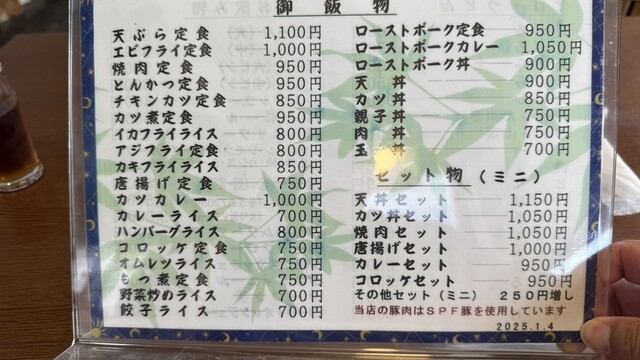 御飯物
天ぷら定食 1,100円
エビフライ定食 1,000円
焼肉定食 950円
とんかつ定食 950円
チキンカツ定食 850円
カツ煮定食 950円
イカフライライス 800円
アジフライ定食 800円
カキフライライス 850円
唐揚げ定食 750円
カツカレー 1,000円
カレーライス 700円
ハンバーグライス 800円
コロッケ定食 750円
オムレツライス 750円
もつ煮定食 750円
野菜炒めライス 700円
餃子ライス 700円
ローストポーク定食 950円
ローストポークカレー 1,050円
ローストポーク丼 900円
天丼 900円
カツ丼 850円
親子丼 750円
肉丼 750円
玉丼 700円
セット物(ミニ)
天丼セット 1,150円
カツ丼セット 1,050円
焼肉セット 1,050円
唐揚げセット 1,000円
カレーセット 950円
コロッケセット 950円
その他セット(ミニ) 250円増し
当店の豚肉はSPF豚を使用しています
2025.1.4